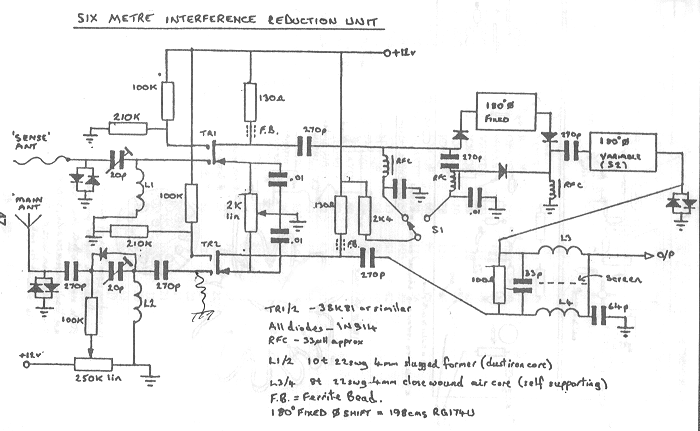 SIX METRE INTERFERENCE REDUCTION UNIT
+12v
100K
130Ω
210K
F.B.
270p
180°Ø
FIXED
'SENSE'
ANT
TR1
RFC
270p
270p
180°Ø
VARIABLE
(S2)
20p
L1
.01
RFC
RFC
'MAIN
ANT
100K
2K
lin
130Ω
2K4
.01
S1
210K
.01
F.B.
TR2
270p
L3
O/P
270p
20p
270p
L2
100Ω
33p
Screen
L4
64p
100K
+12v
250K lin
TR1/2 - 3SK81 or similar
All diodes - IN914
RFC - 33µH approx
L1/2 10t 22swg 4mm slugged former (dust iron core)
L3/4 8t 22swg 4mm close wound air core (self supporting)
F.B. = Ferrite Bead.
180° FIXED Ø SHIFT = 198cms RG174U